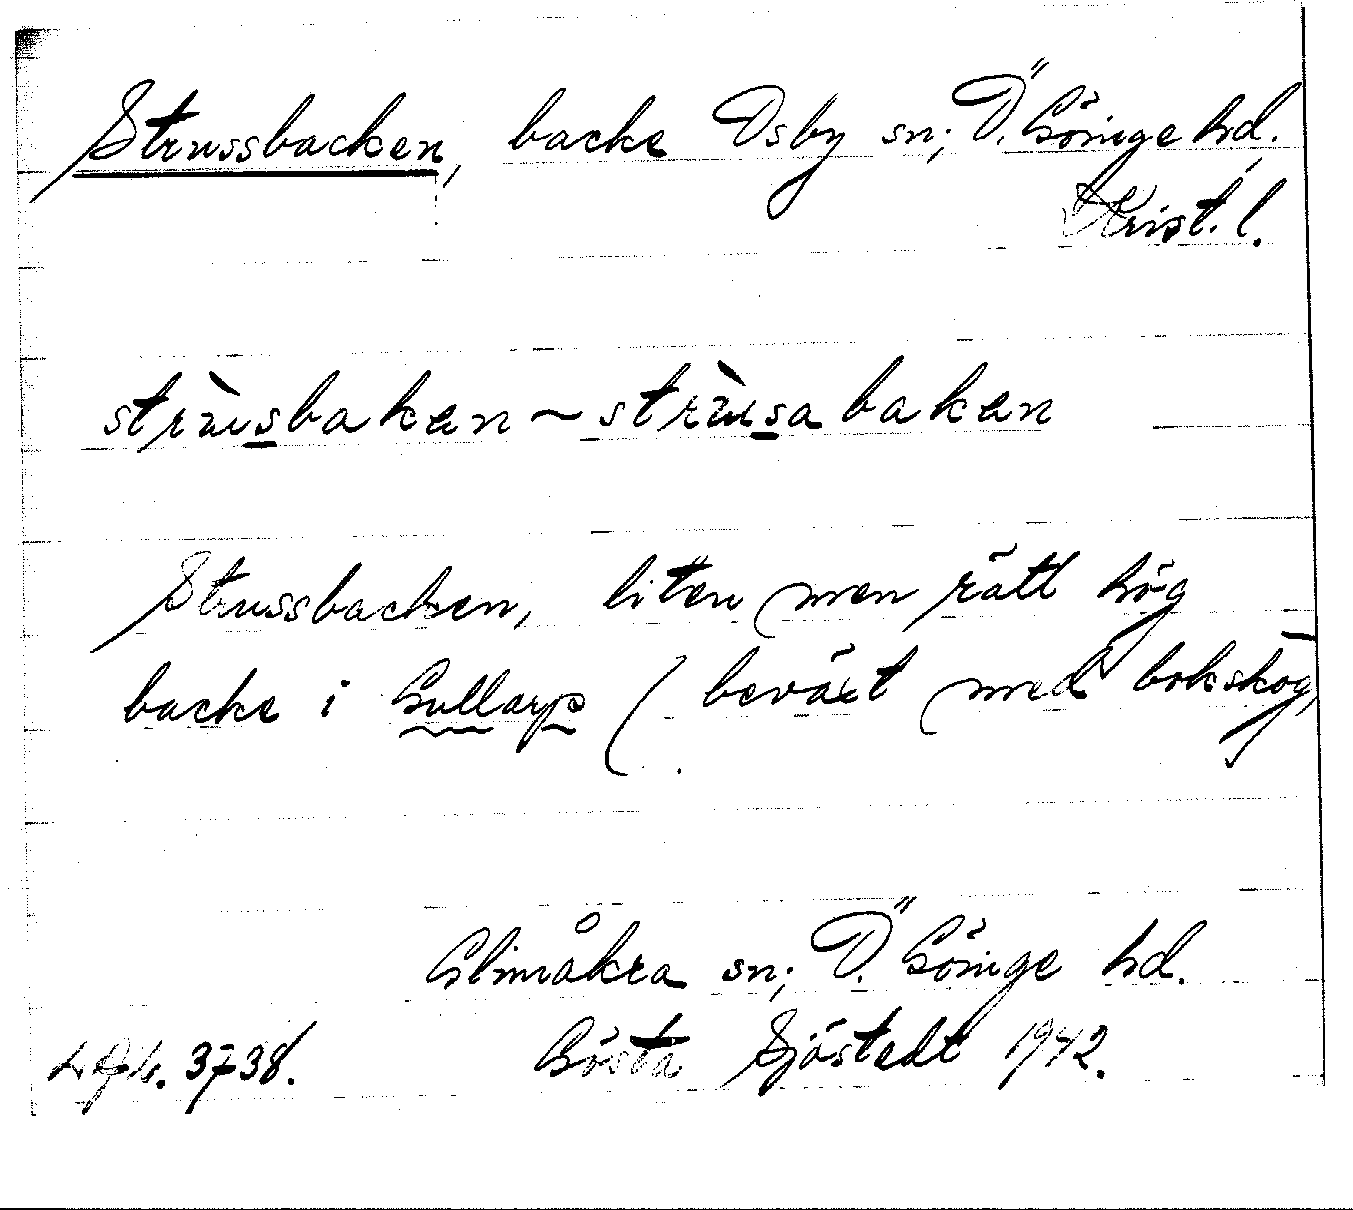 Strussbacken, backe Osby sn; Ö. Göinge hd.
Krist. l.
strùsbaken ~ strùsabaken
Strussbacken, liten men rätt hög
backe i Gullarp (beväxt med bokskog)
Glimåkra sn; Ö. Göinge hd.
3738. Gösta Sjöstedt 1942.